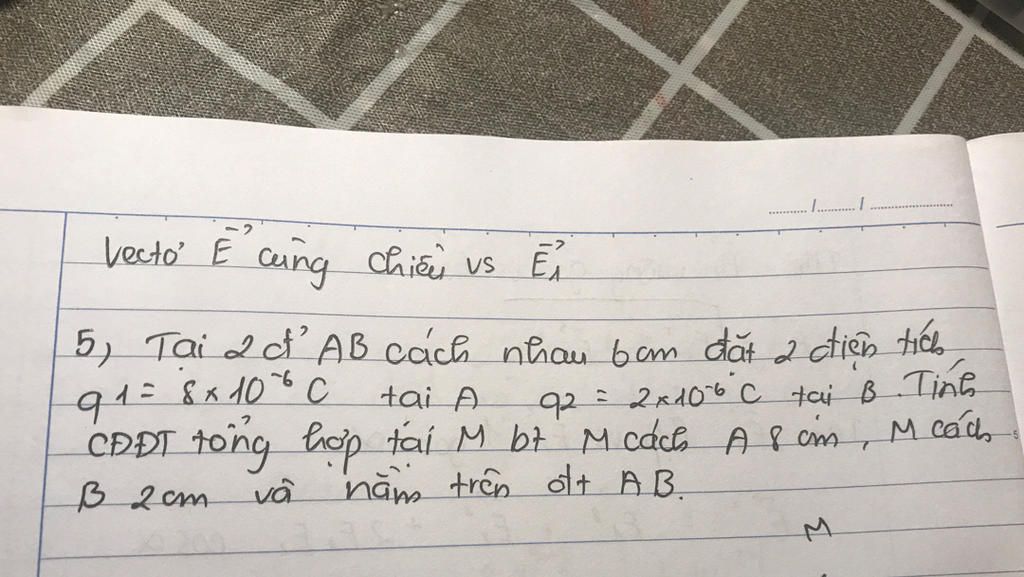 Vectơ E⃗ cùng chiều vs E⃗₁
5, Tại 2 đ' AB cách nhau 6cm đặt 2 điện tích
q1 = 8×10⁻⁶ C tại A q2 = 2×10⁻⁶ C tại B. Tính
CĐĐT tổng hợp tại M bt M cách A 8 cm, M cách
B 2cm và nằm trên đt AB.
M